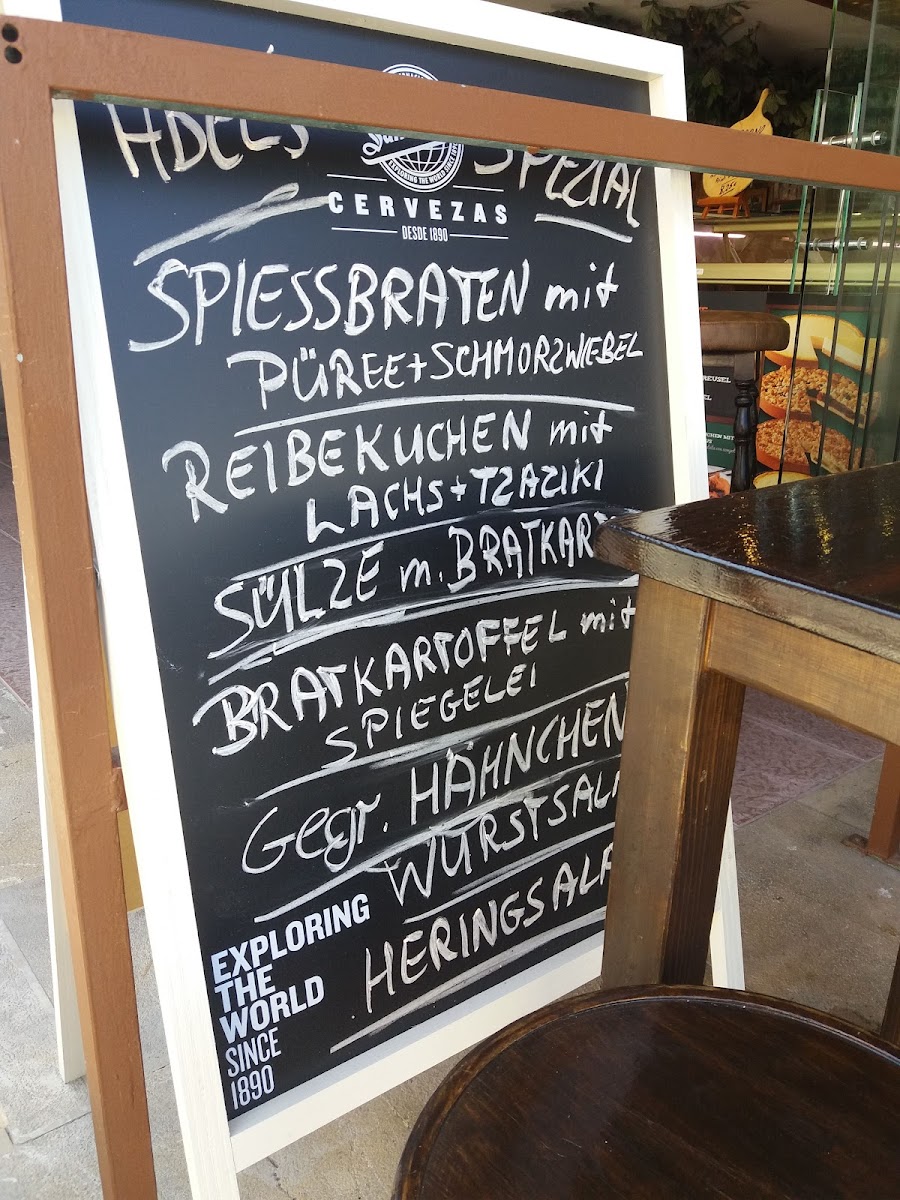 ADELS SPEZIAL
EXPLORING THE WORLD SINCE 1890
CERVEZAS
DESDE 1890
SPIESSBRATEN mit
PÜREE+SCHMORZWIEBEL
REIBEKUCHEN mit
LACHS+TZAZIKI
SÜLZE m. BRATKART
BRATKARTOFFEL mit
SPIEGELEI
Gegr. HÄHNCHEN
WURSTSAL
HERINGSALA
EXPLORING
THE
WORLD
SINCE
1890